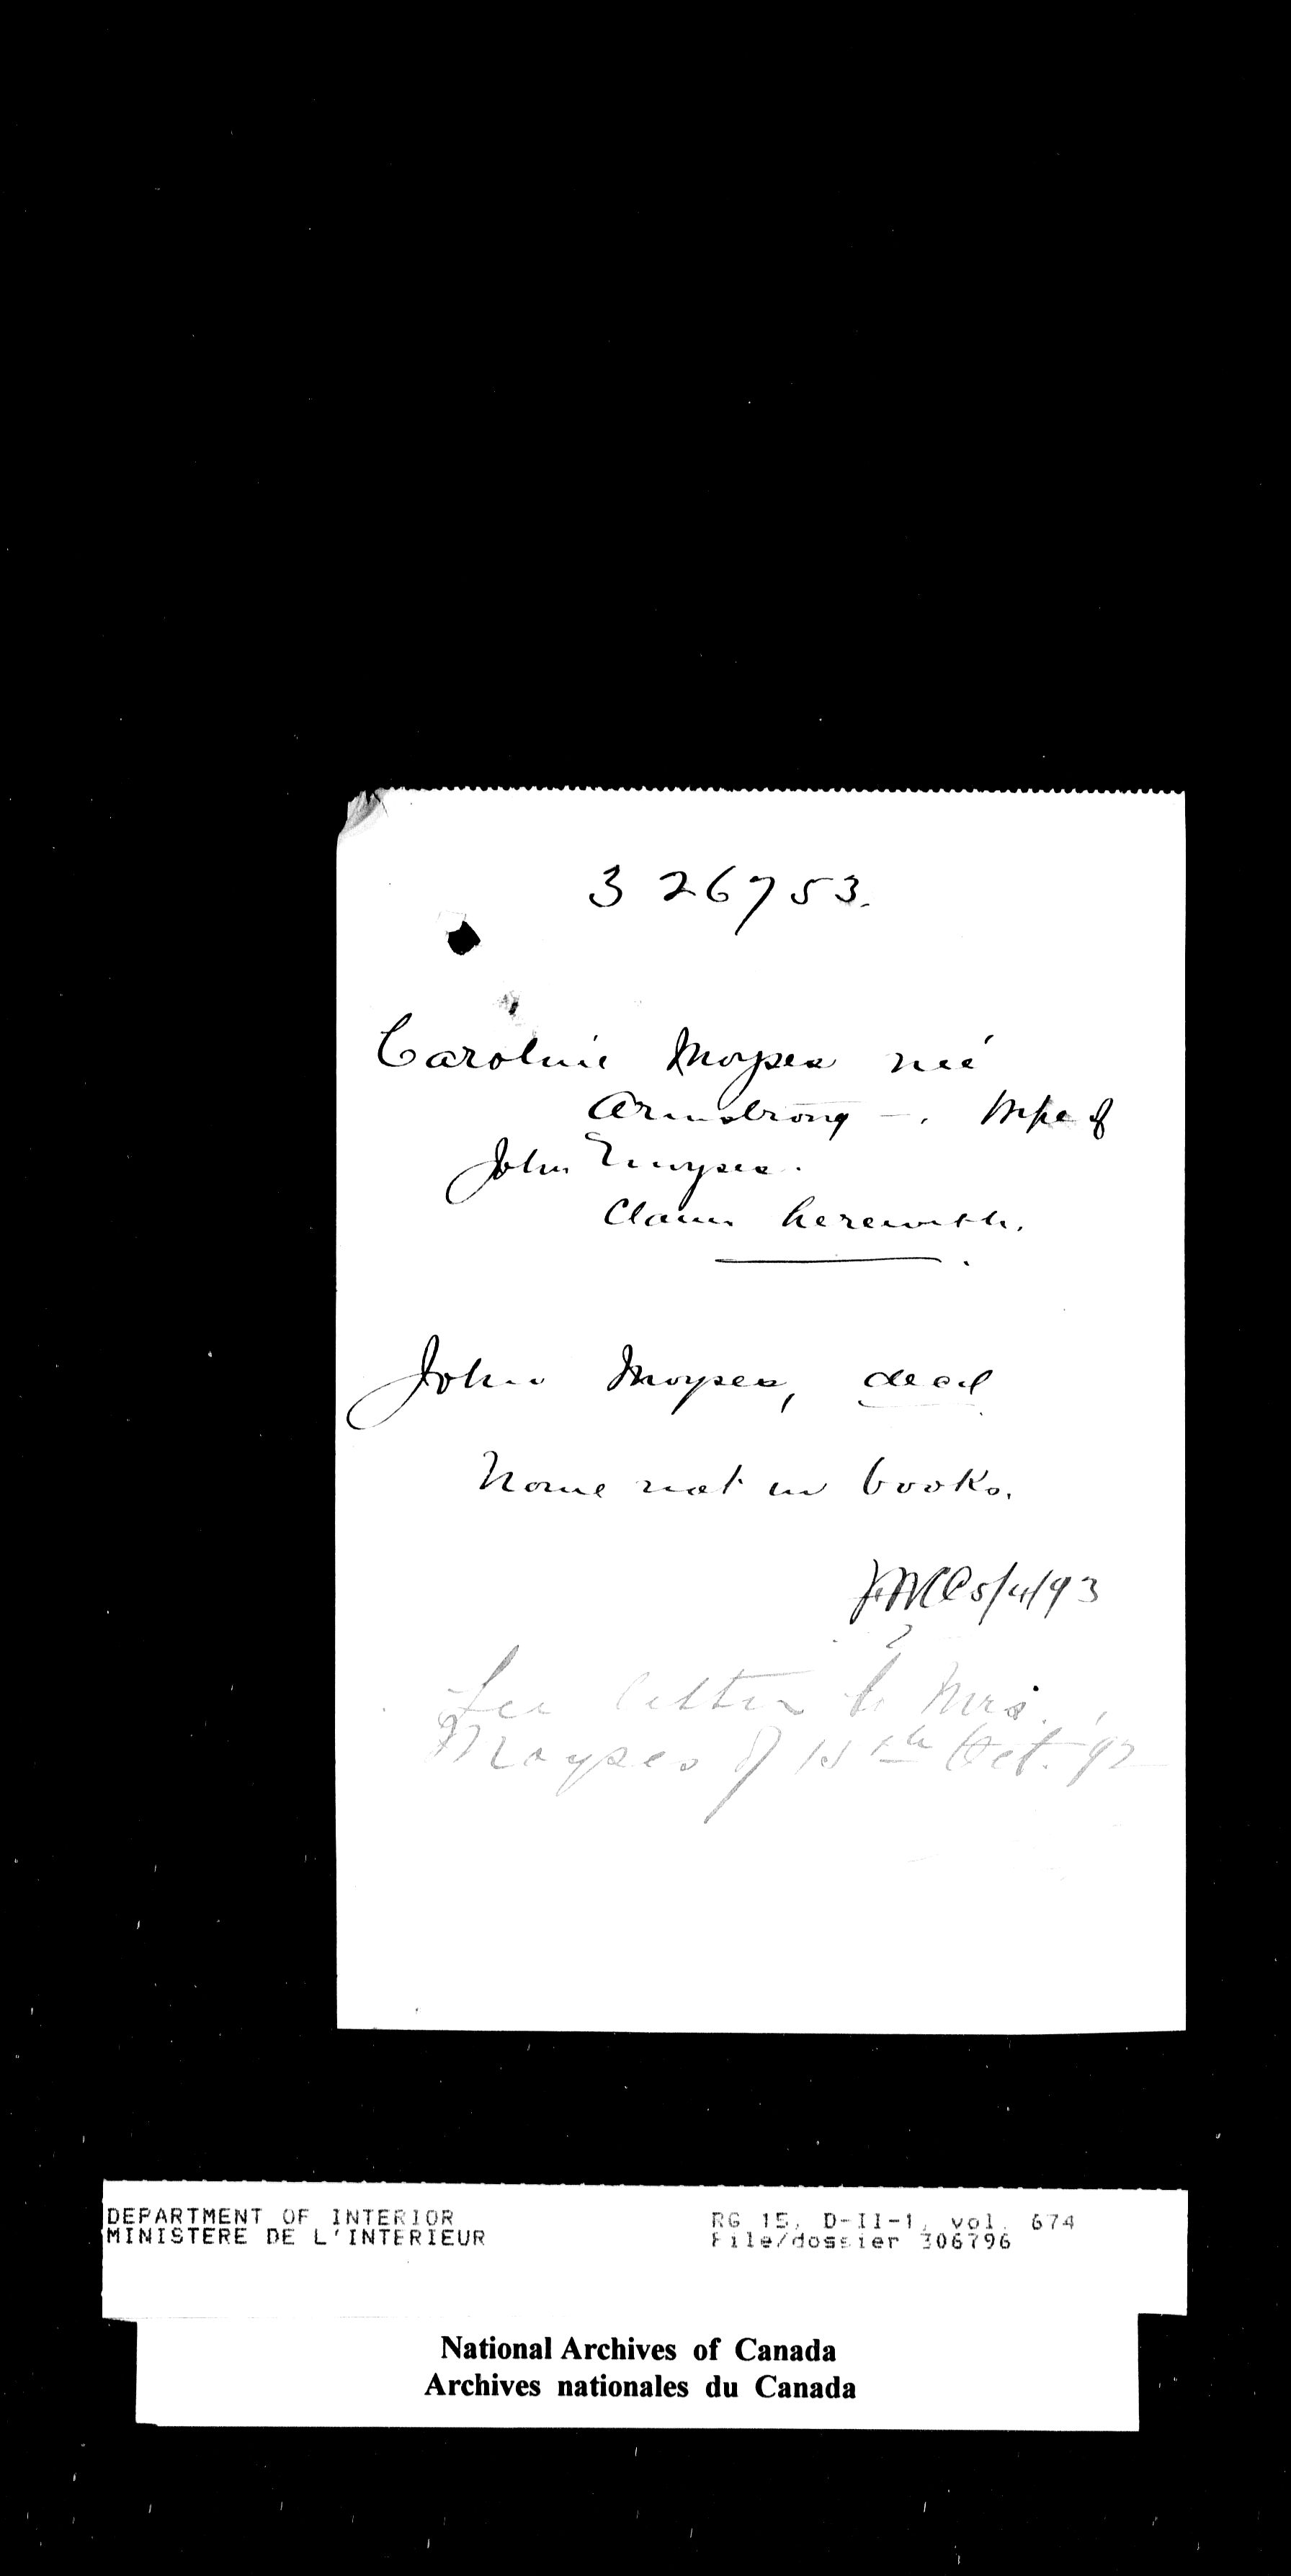 326753.
Caroline Moyses neé
Armstrong —. Wife of
John Moyses.
Claim herewith.
John Moyses, decd
Name not in books.
5/4/93
See letter to Mrs.
Moyses of 15th Oct. 92
DEPARTMENT OF INTERIOR
MINISTERE DE L'INTERIEUR
RG 15, D-II-1, vol. 674
File/dossier 306796
National Archives of Canada
Archives nationales du Canada